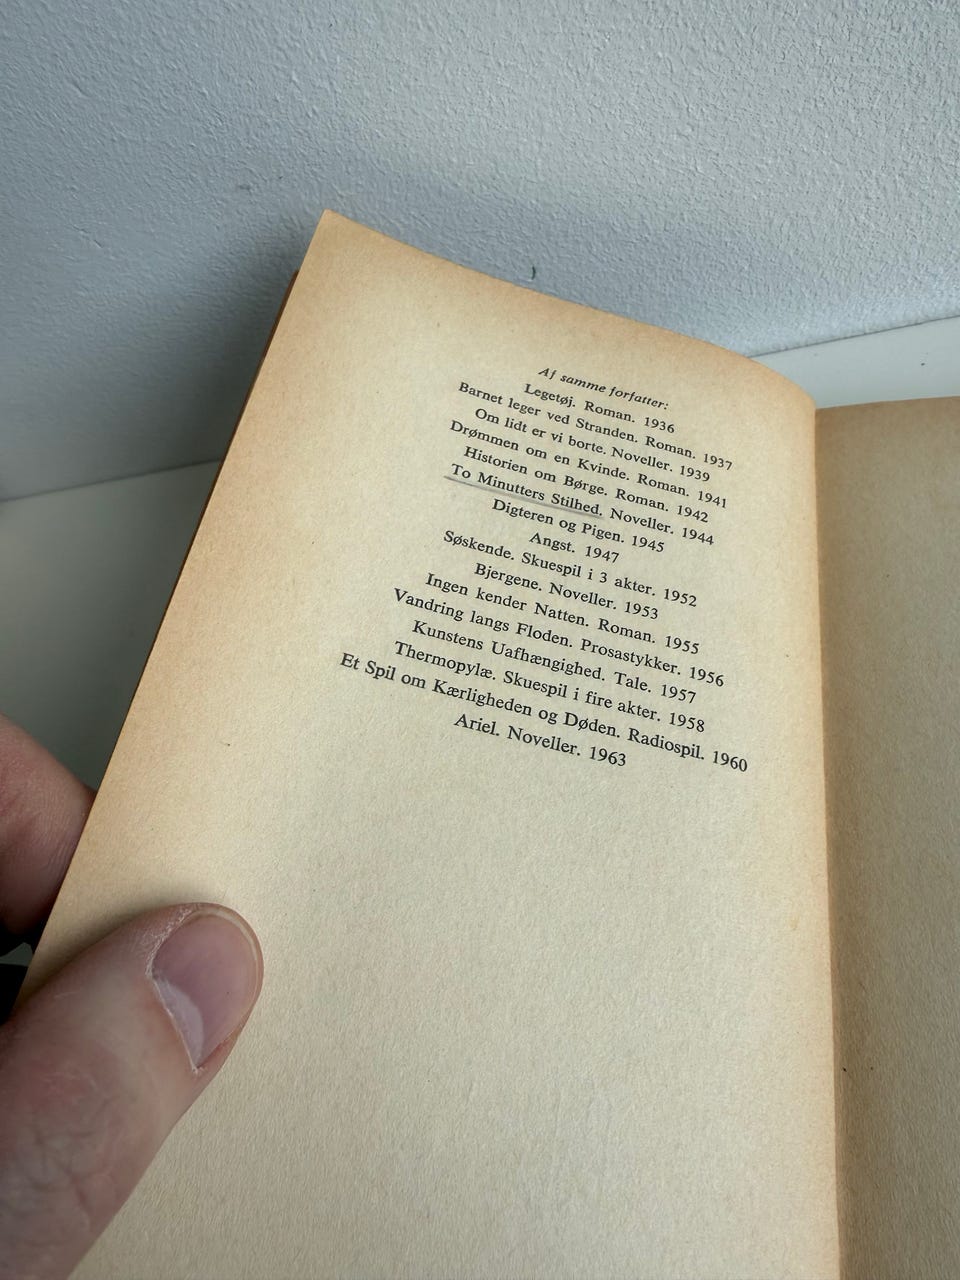 Af samme forfatter:
Legetøj. Roman. 1936
Barnet leger ved Stranden. Roman. 1937
Om lidt er vi borte. Noveller. 1939
Drømmen om en Kvinde. Roman. 1941
Historien om Børge. Roman. 1942
To Minutters Stilhed. Noveller. 1944
Digteren og Pigen. 1945
Angst. 1947
Søskende. Skuespil i 3 akter. 1952
Bjergene. Noveller. 1953
Ingen kender Natten. Roman. 1955
Vandring langs Floden. Prosastykker. 1956
Kunstens Uafhængighed. Tale. 1957
Thermopylæ. Skuespil i fire akter. 1958
Et Spil om Kærligheden og Døden. Radiospil. 1960
Ariel. Noveller. 1963